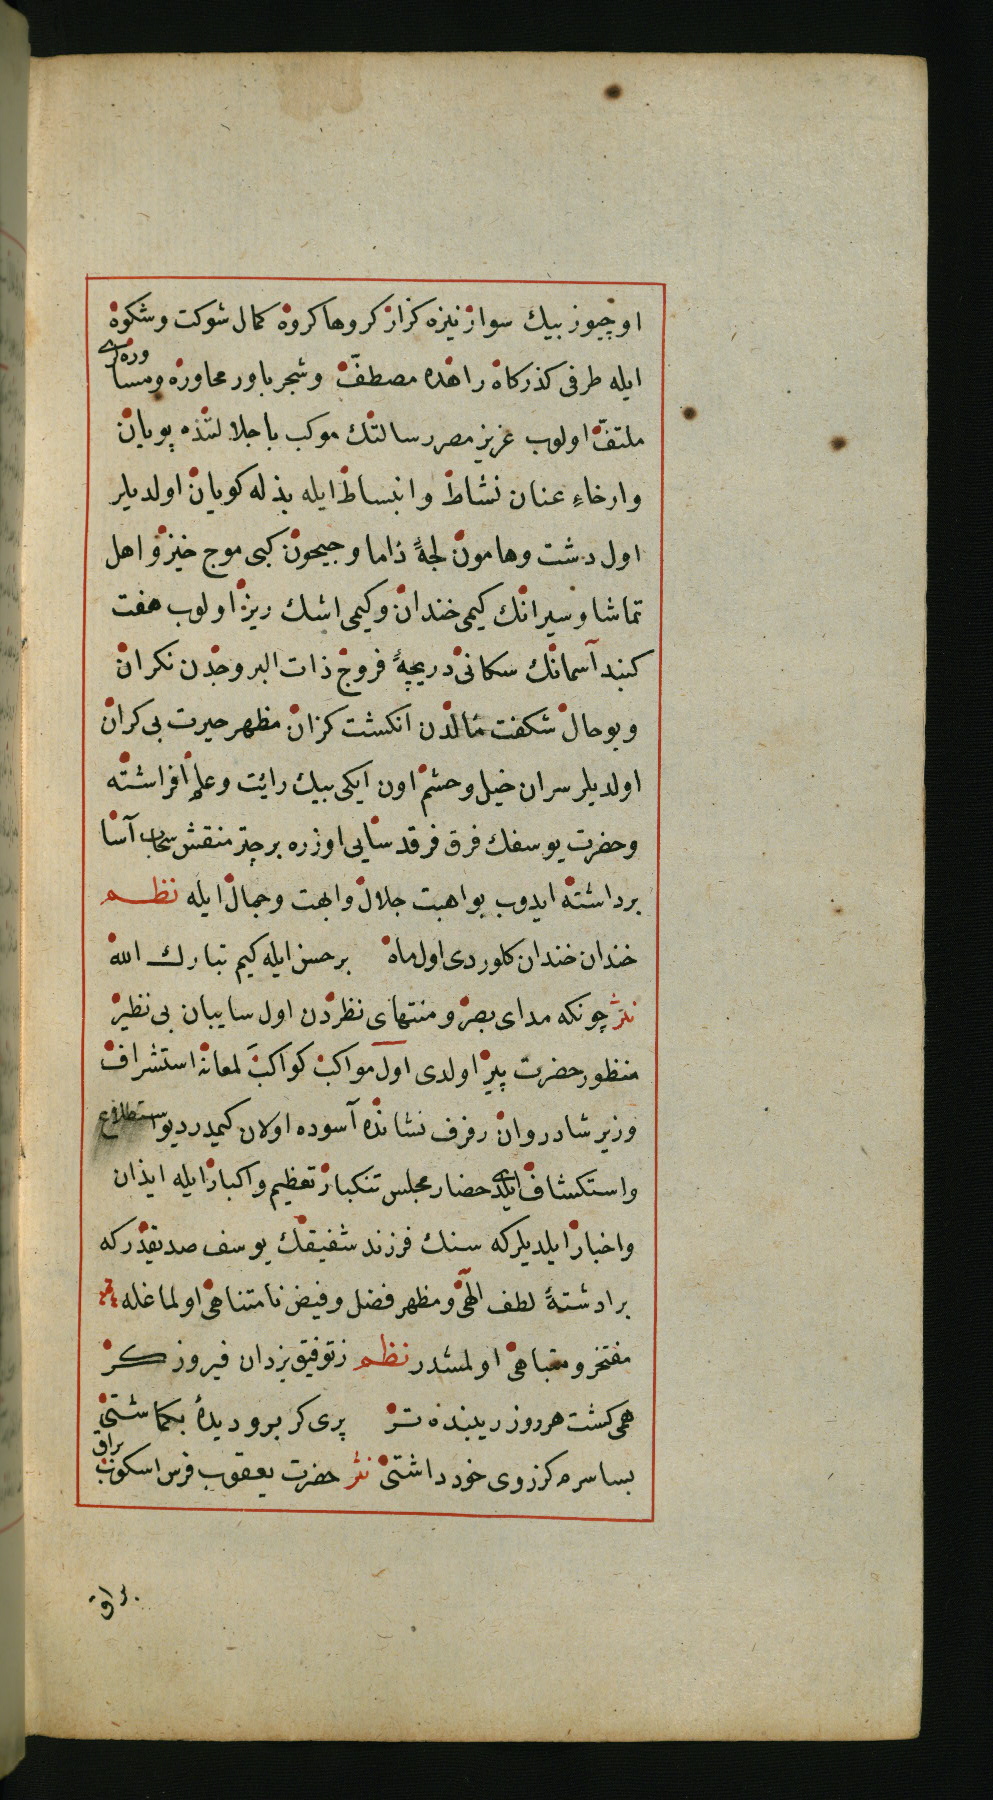 اوچیوز بیك سوار نیزه کزار کروها کروه کمال شوکت وشکوه
ایله طرفی کذرکاه راهده مصطفّ وشجر باور محاوره ومساوره‌ی
ملتفّ اولوب عزیز مصر رسالتك موکب باجلالتنده پویان
وارخاءِ عنان نشاط وانبساط ایله بذله کویان اولدیلر
اول دشت وهامون لجهٔ داما وجیحون کبی موج خیز و اهل
تماشا وسیرانك کیمی خندان وکیمی اشك ریز اولوب هفت
کنبد آسمانك سکانی دریچهٔ فروج ذات البروجدن نکران
وبوحال شکفت مالدن انکشت کزان مظهر حیرت بی کران
اولدیلر سران خیل وحشم اون ایکی بیك رایت وعلم افراشته
وحضرت یوسفك فرق فرقدسایی اوزره بر چتر منقش سحاب آسا
برداشته ایدوب بو اهبت جلال وابهت وجمال ایله نظم
خندان خندان کلوردی اول ماه برحسن ایله کیم تبارك الله
نثر چونکه مدای بصر و منتهای نظردن اول سایبان بی نظیر
منظور حضرت پیر اولدی اول مواکب کواکب لمعانه استشراف
وزیر شادروان رفرف نشانده آسوده اولان کیمدر دیو استطلاع
واستکشاف ایلدی حضار مجلس تنکبار تعظیم واکبار ایله ایذان
واخبار ایلدیلرکه سنك فرزند شفیقك یوسف صدیقدر که
برادشتهٔ لطف الهی ومظهر فضل وفیض نامتناهی اولماغله
مفتخر ومتباهی اولمشدر نظم زتوفیق یزدان فیروز کر
همی کشت هر روز زیبنده تر پری کر برو دیدهٔ بکماشتی
بسا سرم کز روی خود داشتی نثر حضرت یعقوب فرس اسکوب براق
براق